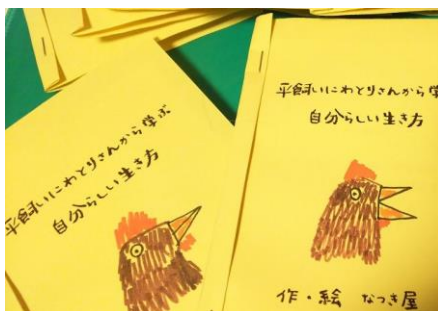 平飼いにわとりさんから学ぶ
自分らしい生き方
平飼いにわとりさんから学
自分らしい生き方
作・絵 なつき屋